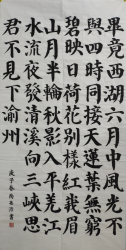 畢竟西湖六月中風光不
與四時同接天蓮葉無窮
碧映日荷花別樣紅峩眉
山月半輪秋影入平羌江
水流夜發清溪向三峽思
君不見下渝州
庚子春